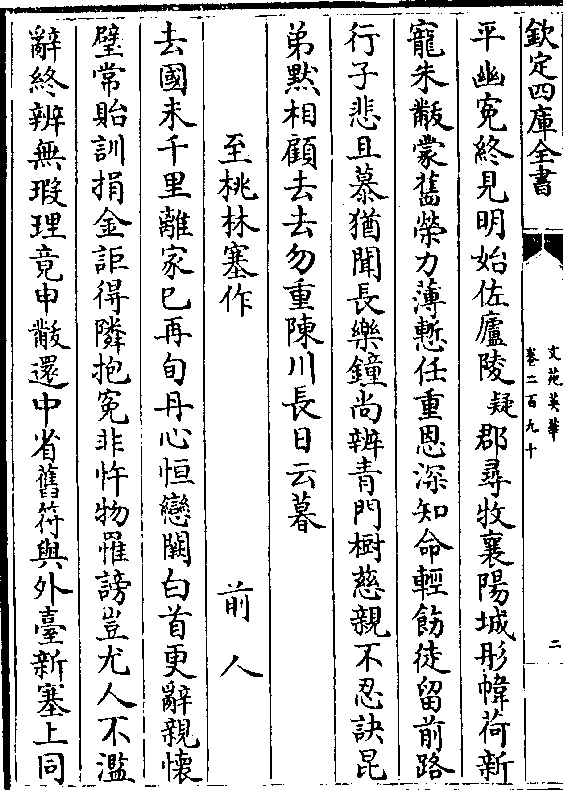 欽定四庫全書
文苑英華
卷二百九十
二
平幽寃終見明始佐廬陵疑郡尋牧襄陽城彤幃荷新
寵朱黻蒙舊榮力薄慙任重恩深知命輕飭徒留前路
行子悲且慕猶聞長樂鐘尚辨青門樹慈親不忍訣昆
弟黙相顧去去勿重陳川長日云暮
至桃林塞作 前人
去國未千里離家已再旬丹心恒戀闕白首更辭親懷
璧常貽訓捐金詎得隣抱寃非忤物罹謗豈尤人不濫
辭終辨無瑕理竟申黻還中省舊符與外臺新塞上同